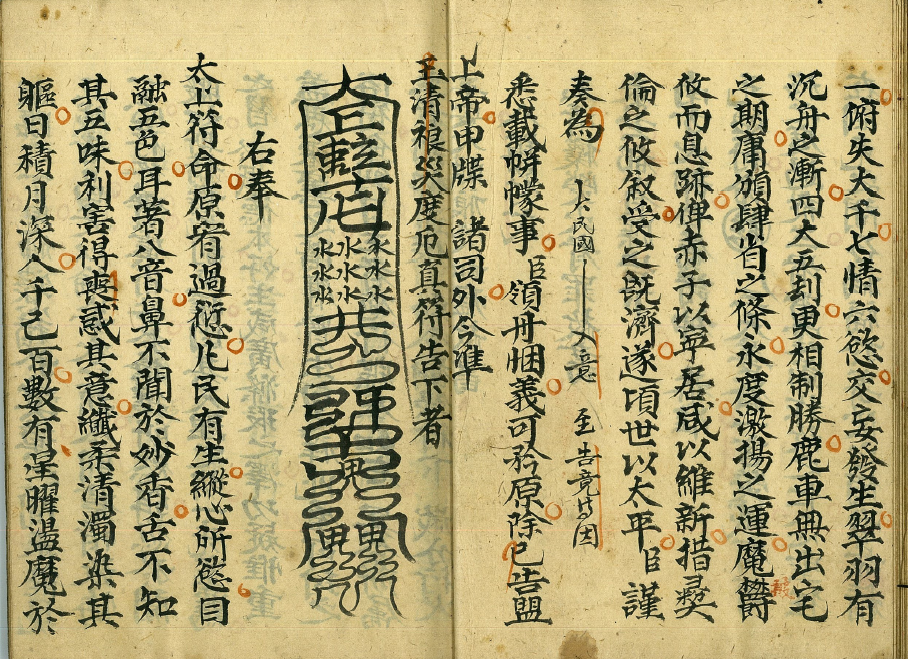 一俯失大千七情六慾交妄發生翠羽有
沉舟之漸四大五刦更相制勝鹿車無出宅
之期庸頒肆眚之條永度激揚之運魔欝
攸而息跡俾赤子以寧居咸以維新措彛
倫之攸叙受之既濟遂頃世以太平臣謹
奏為 大民國 入意 至告竟
悉載帡幪事臣領丹悃義可矜原除已告盟
上帝申牒諸司外今準
玉清禳災度厄真符告下者
水水水水水水水水水
右奉
太上符命原宥過愆凢民有生縱心所慾目
融五色耳著八音鼻不聞於妙香舌不知
其五味利害得喪惑其意纖柔清濁染其
軀日積月深人千己百數有呈曜盪魔於